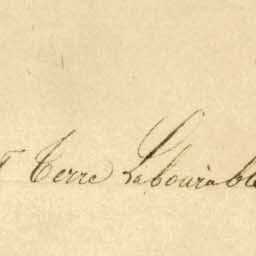 Terre Labourable